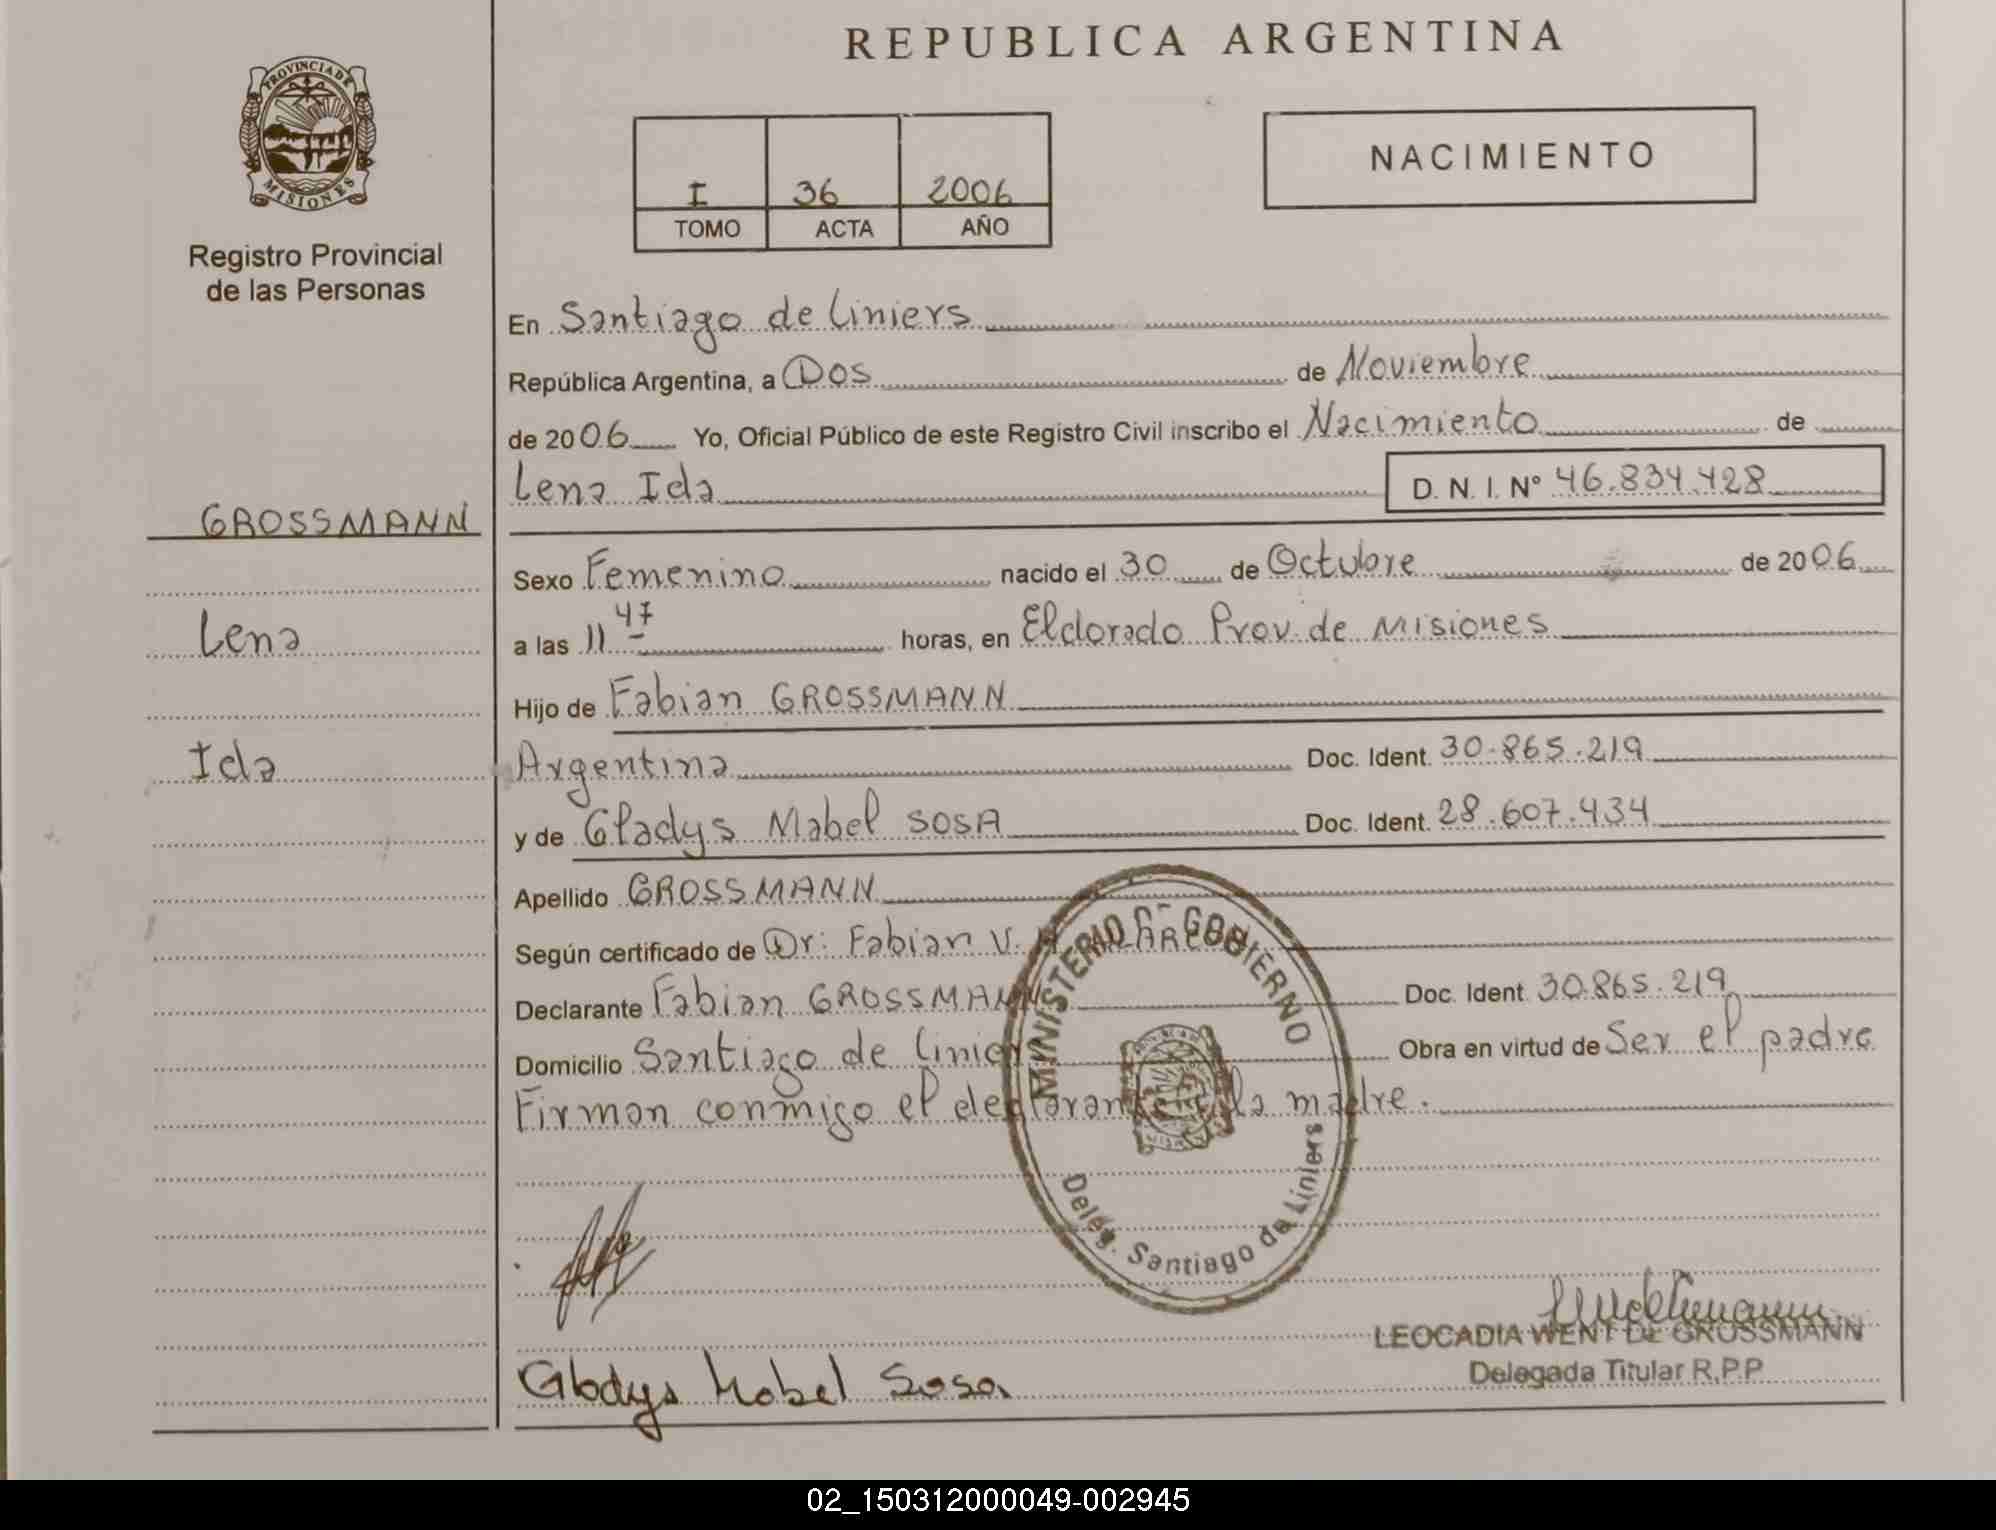 REPUBLICA ARGENTINA
PROVINCIA DE
MISIONES
Registro Provincial
de las Personas
I 36 2006
TOMO ACTA AÑO
NACIMIENTO
GROSSMANN
Lena
Ida
En Santiago de Liniers
República Argentina, a Dos de Noviembre
de 2006 Yo, Oficial Público de este Registro Civil inscribo el Nacimiento de
Lena Ida D. N. I. Nº 46.834.428
Sexo Femenino nacido el 30 de Octubre de 2006
a las 11 47 horas, en Eldorado Prov. de Misiones
Hijo de Fabian GROSSMANN
Argentina Doc. Ident. 30.865.219
y de Gladys Mabel SOSA Doc. Ident. 28.607.434
Apellido GROSSMANN
Según certificado de Dr: Fabian V.
Declarante Fabian GROSSMANN Doc. Ident. 30.865.219
Domicilio Santiago de Liniers Obra en virtud de Ser el padre
Firman conmigo el declarante y la madre.
MINISTERIO DE GOBIERNO
Deleg. Santiago de Liniers
LEOCADIA WENT DE GROSSMANN
Delegada Titular R.P.P.
Gladys Mabel Sosa
02_150312000049-002945